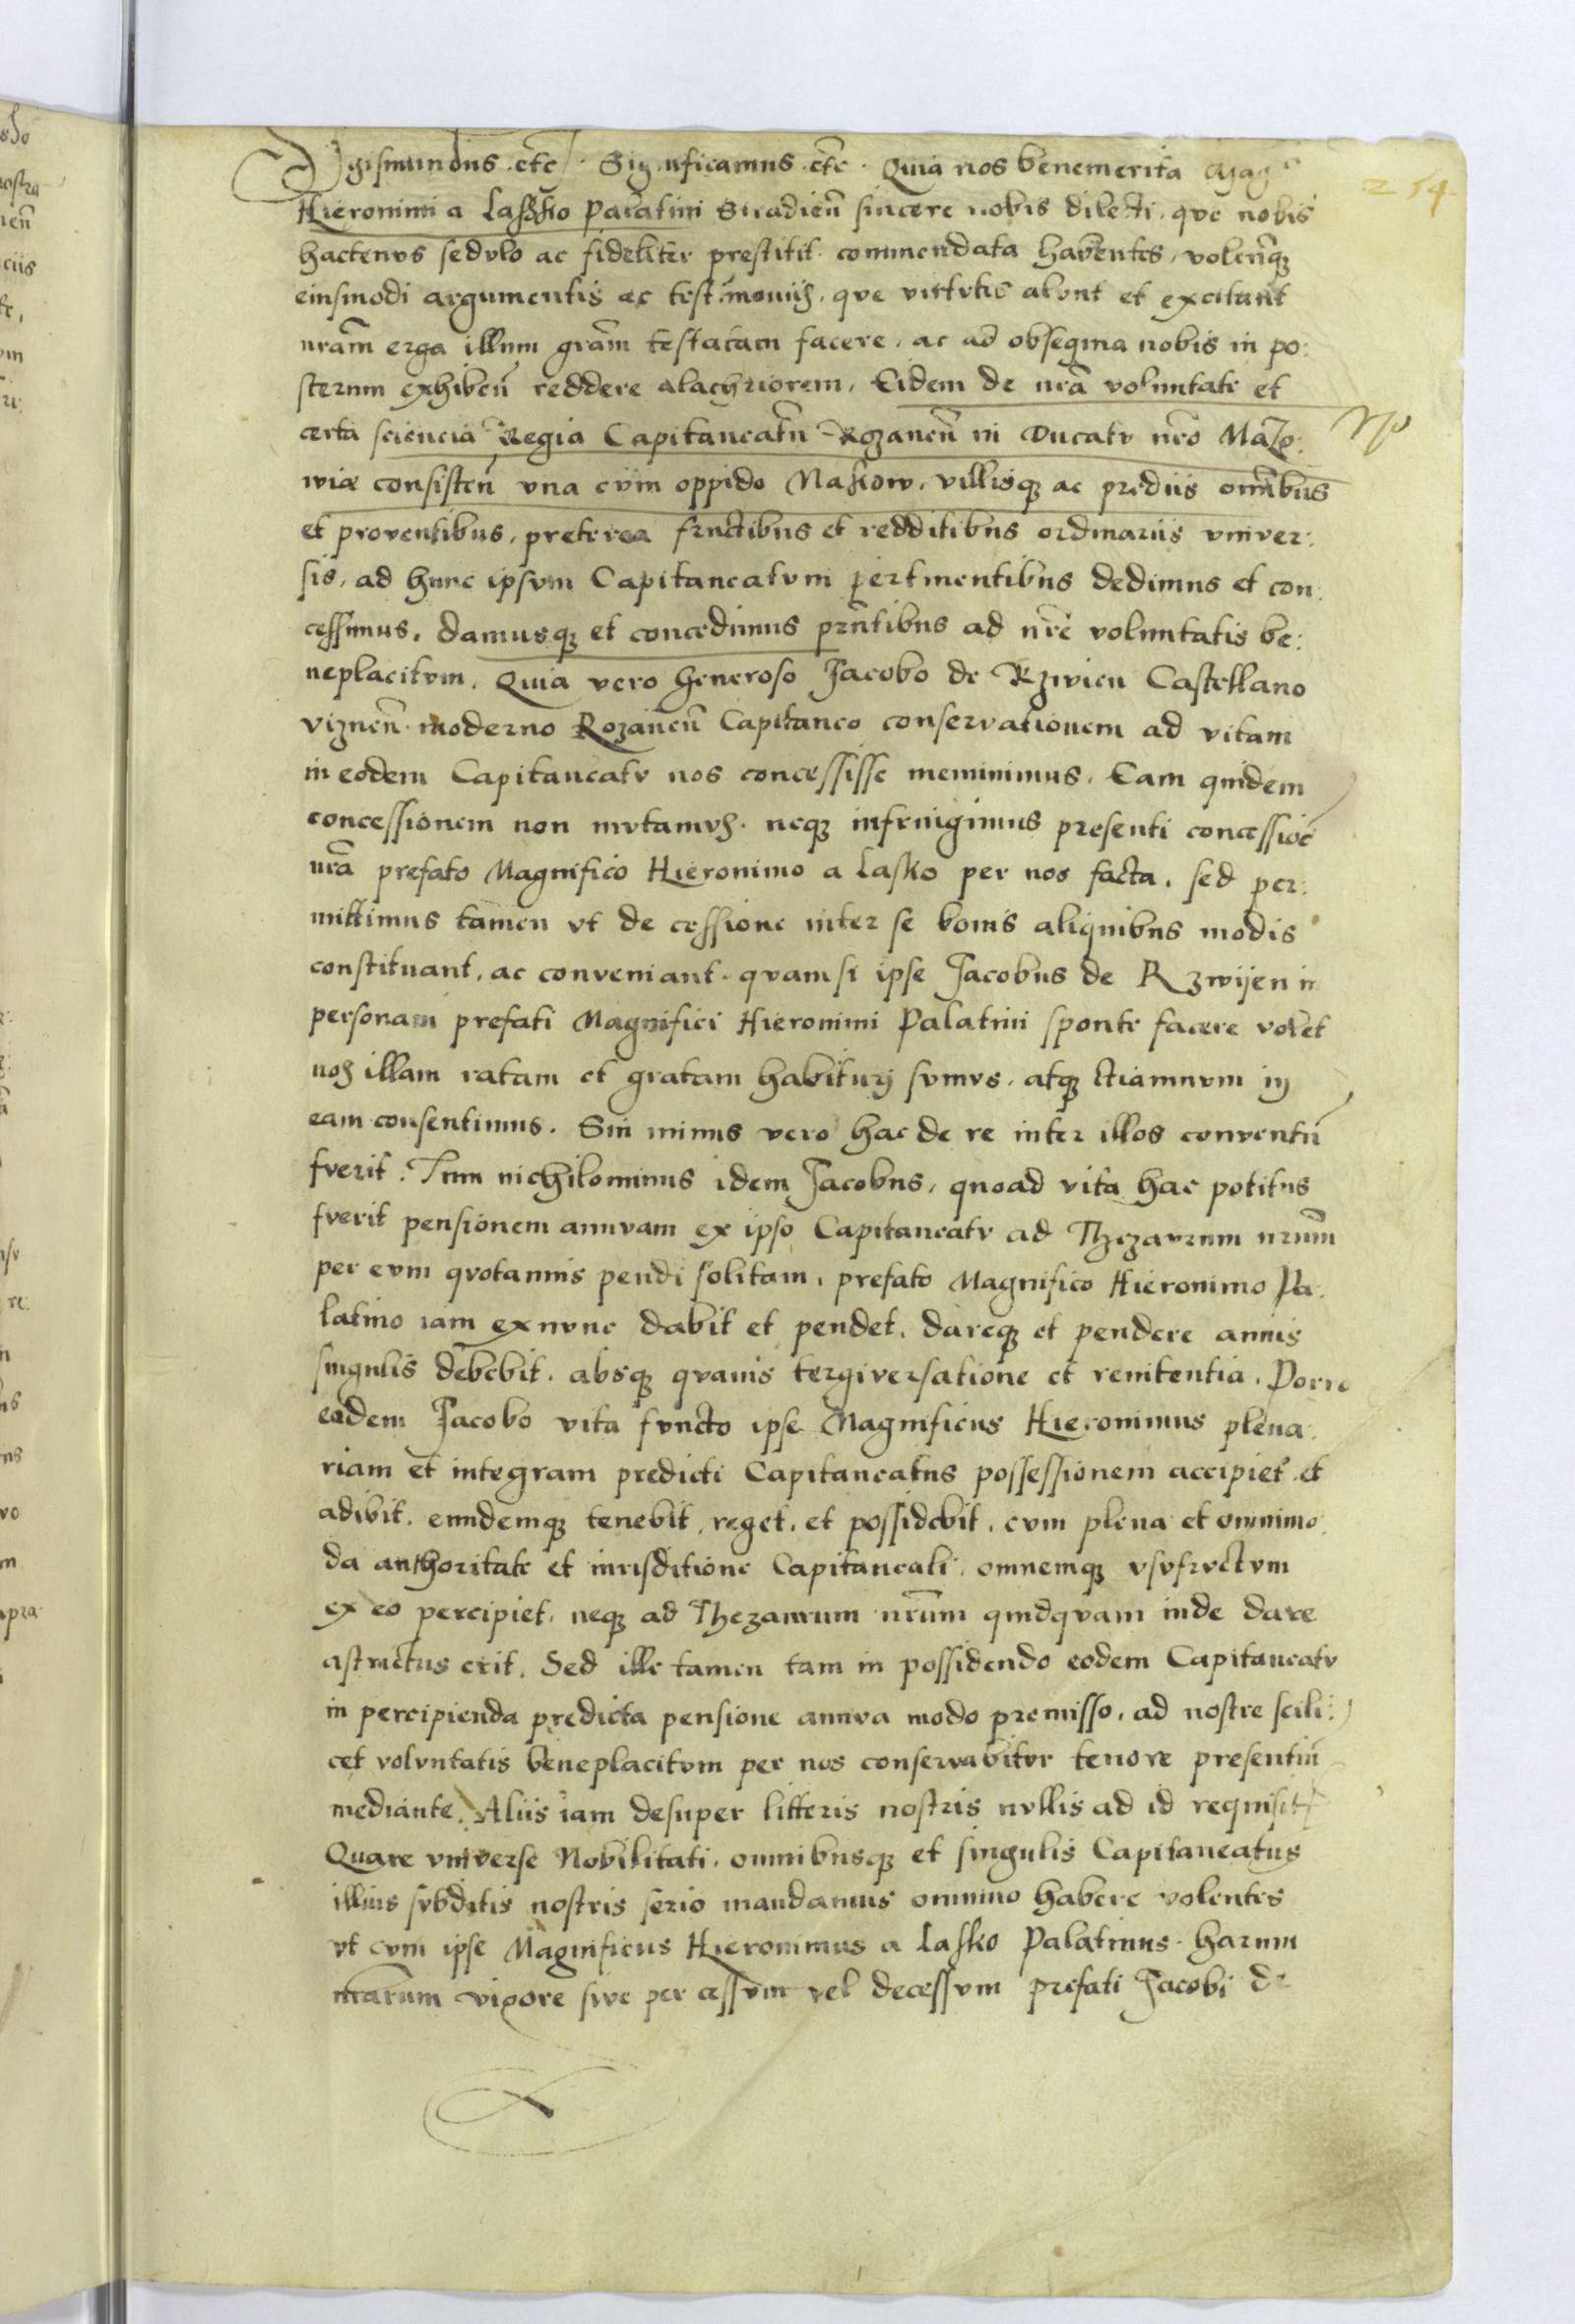 254
Sigismundus etc. Significamus etc. Quia nos benemerita Mag
Hieronimi a Lassko Palatini Siradien̄ sincere nobis dilecti, que nobis
hactenvs sedvlo ac fideliter prestitit commendata habentes, volen̄tqꝫ
eiusmodi argumentis ac testimoniis, que virtvtes alvnt et excitant
nr̄am erga illum gr̄am testatam facere, ac ad obsequia nobis in po:
sterum exhiben̄ reddere alachriorem, Eidem de nr̄a voluntate et
certa sciencia Regia Capitaneatū Rozanen̄ in Ducatv nr̄o Mazo:
wiæ consisten̄ vna cvm oppido Makow, villisqꝫ ac prediis om̄ibus
et proventibus, preterea fructibus et redditibus ordinariis vniver:
sis, ad hunc ipsvm Capitaneatvm pertinentibus dedimus et con:
cessimus, damusqꝫ et concedimus pn̄tibus ad nr̄e voluntatis be:
neplacitvm. Quia vero Generoso Jacobo de Rzwien Castellano
viznen̄ moderno Rozanen̄ Capitaneo conservationem ad vitam
in eodem Capitaneatv nos concessisse meminimus, Eam quidem
concessionem non mvtamvs. neqꝫ infringimus presenti concessioē
nr̄a prefato Magnifico Hieronimo a Lasko per nos facta, sed per:
mittimus tamen vt de cessione inter se bonis aliquibus modis
constituant, ac conveniant. qvam si ipse Jacobus de Rzwijen in
personam prefati Magnifici Hieronimi Palatini sponte facere volet
nos illam ratam et gratam habiturj svmvs, atqꝫ etiamnvm in
eam consentimus. Sin minus vero hac de re inter illos conventū
fverit. Tum nichilominus idem Jacobus, quoad vita hac potitus
fverit pensionem annvam ex ipso Capitaneatv ad Thezavrum nr̄um
per evm qvotannis pendi solitam, prefato Magnifico Hieronimo Pa:
latino iam ex nvnc dabit et pendet, dareqꝫ et pendere annis
singulis debebit, absqꝫ qvauis tergiversatione et renitentia. Porro
eodem Jacobo vita fvncto ipse Magnificus Hieronimus plena:
riam et integram predicti Capitaneatus possessionem accipiet et
adibit, eundemqꝫ tenebit, reget, et possidebit, cvm plena et omnimo
da authoritate et iurisditione Capitaneali, omnemqꝫ vsvfrvctvm
ex eo percipiet, neqꝫ ad Thezaurum nr̄um quidqvam inde dare
astrictus erit. Sed ille tamen tam in possidendo eodem Capitaneatv
in percipienda predicta pensione annva modo premisso, ad nostre scili:
cet volvntatis beneplacitvm per nos conservabitvr tenore presentiū
mediante. Aliis iam desuper litteris nostris nvllis ad id requisit
Quare vniverse Nobilitati, omnibusqꝫ et singulis Capitaneatus
illius svbditis nostris serio mandamus omnino habere volentes
vt cvm ipse Magnificus Hieronimus a Lasko Palatinus harum
litterarum vigore sive per cessvm vel decessvm prefati Jacobi de